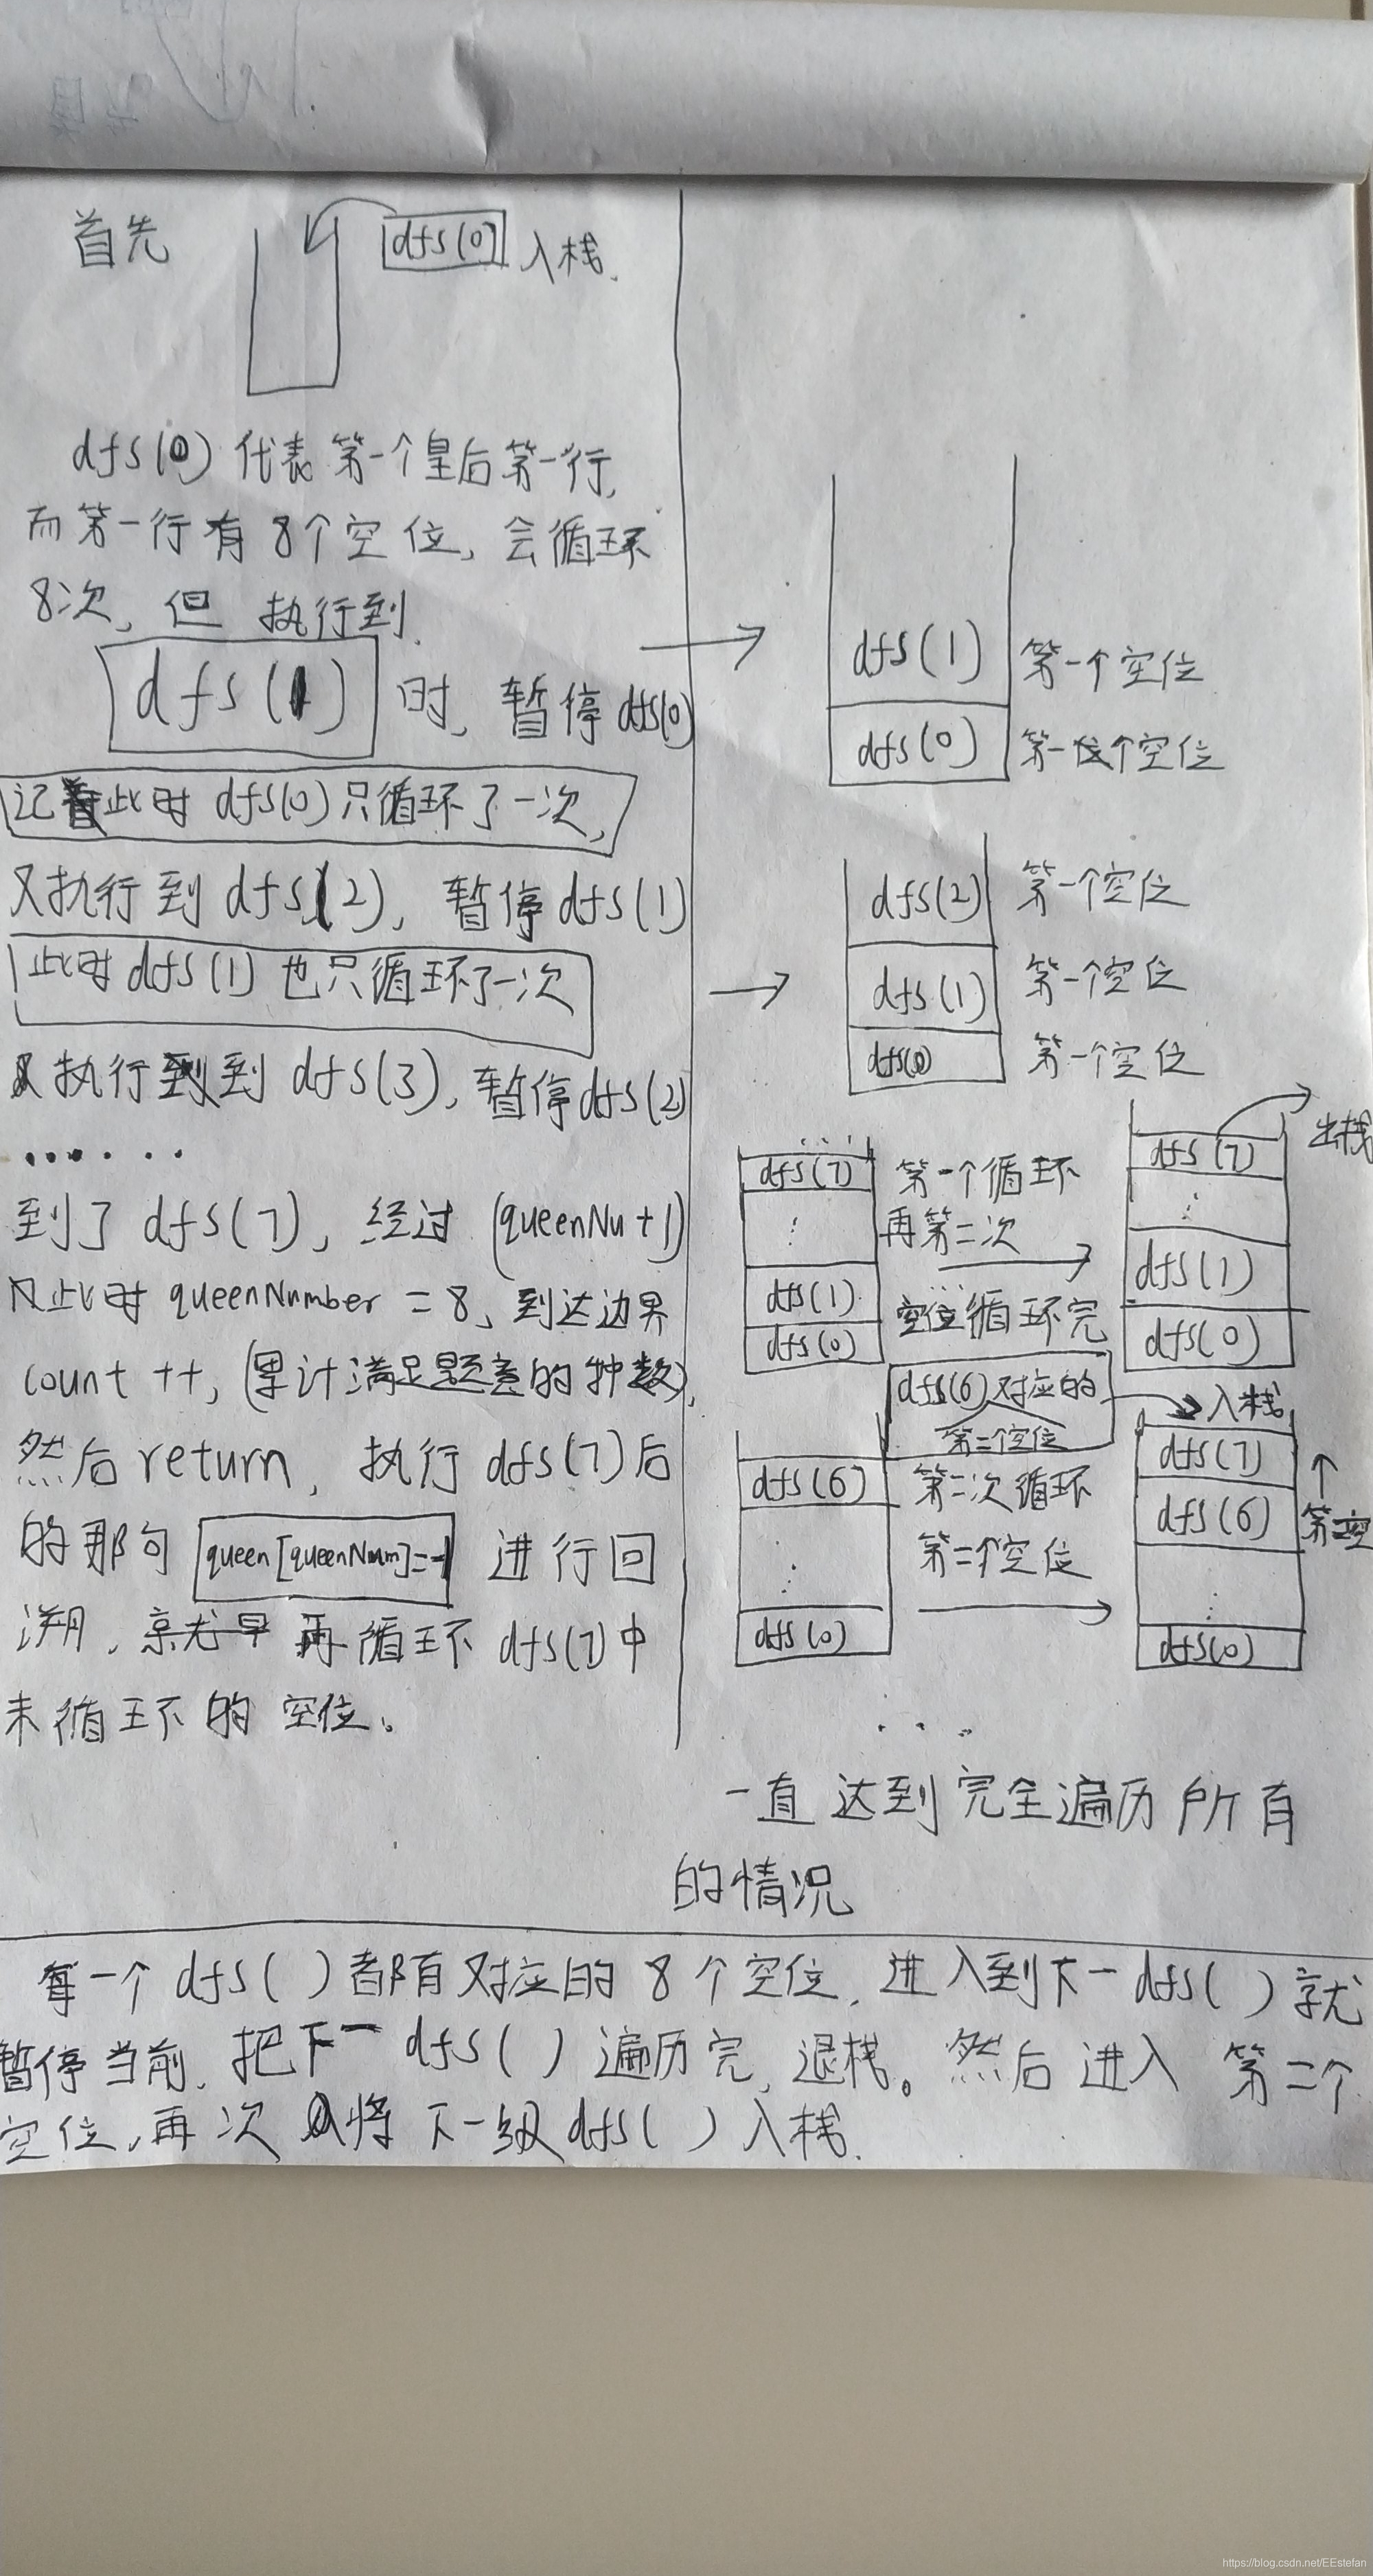 首先
dfs(0) 入栈.
dfs(0) 代表第一个皇后第一行,
而第一行有8个空位, 会循环
8次, 但 执行到
dfs(1) 时, 暂停dfs(0)
记着此时 dfs(0)只循环了一次,
又执行到dfs(2), 暂停dfs(1)
此时dfs(1)也只循环了一次
又执行到dfs(3), 暂停dfs(2)
......
到了dfs(7), 经过 (queenNu+1)
此时queenNumber = 8, 到达边界
count ++, (累计满足题意的种数),
然后return, 执行dfs(7)后
的那句 queen[queenNum]=-1 进行回
溯, 再循环dfs(7)中
未循环的空位。
dfs(1) 第一个空位
dfs(0) 第一个空位
dfs(2) 第一个空位
dfs(1) 第一个空位
dfs(0) 第一个空位
dfs(7)
dfs(1)
dfs(0)
第一个循环
再第二次
......
空位循环完
出栈
dfs(7)
dfs(1)
dfs(0)
dfs(6)对应的
第二个空位
入栈
dfs(6)
dfs(0)
第二次循环
第二个空位
dfs(7)
dfs(6)
dfs(0)
...
一直达到完全遍历所有
的情况
每一个dfs( )都有对应的8个空位, 进入到下一dfs( )就
暂停当前, 把下一dfs( )遍历完, 退栈。然后进入 第二个
空位, 再次将下一级dfs( )入栈.
https://blog.csdn.net/EEstefan